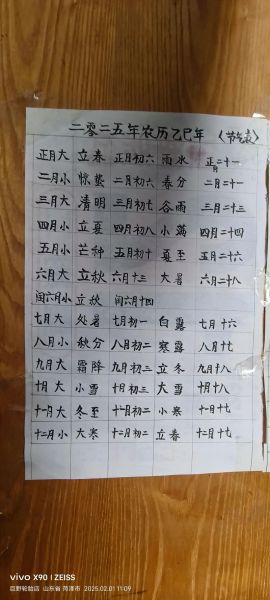 二零二五年农历乙巳年 《节气表》
正月大 立春 正月初六 雨水 正月二十一
二月小 惊蛰 二月初六 春分 二月二十一
三月大 清明 三月初七 谷雨 三月二十三
四月小 立夏 四月初八 小满 四月二十四
五月小 芒种 五月初十 夏至 五月二十六
六月大 立秋 六月十三 大暑 六月二十八
闰六月小 立秋 闰六月十四
七月大 处暑 七月初一 白露 七月十六
八月小 秋分 八月初二 寒露 八月十七
九月大 霜降 九月初三 立冬 九月十八
十月大 小雪 十月初三 大雪 十月十八
十一月大 冬至 十一月初二 小寒 十一月十七
十二月小 大寒 十二月初二 立春 十二月十七
vivo X90 | ZEISS
巨野轮胎店 山东省 菏泽市 2025.02.01 11:09